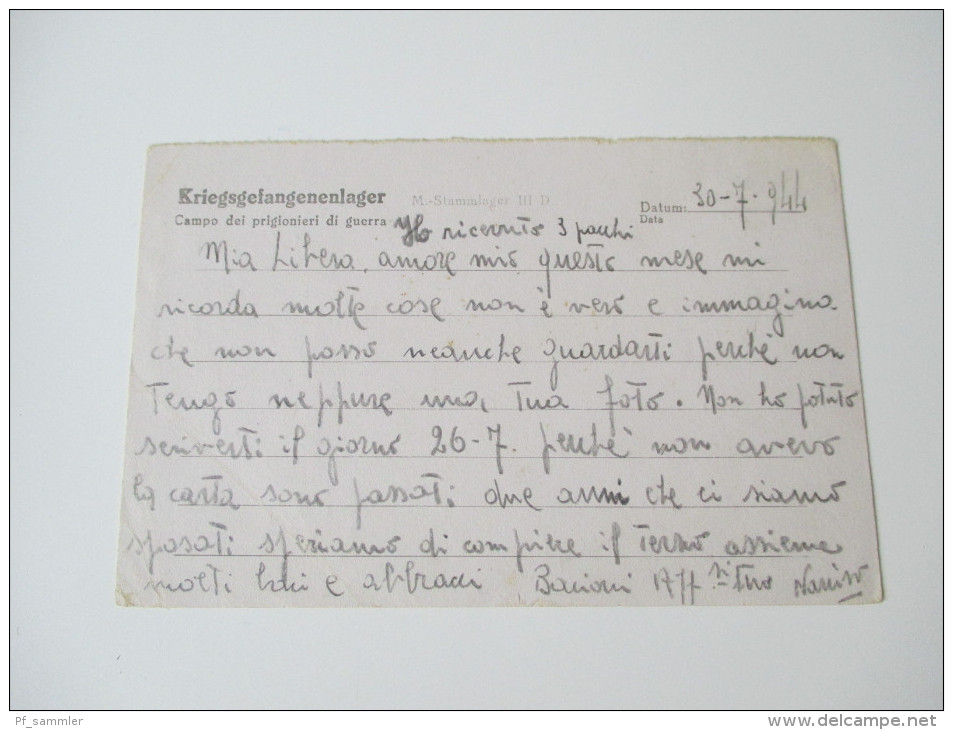 Kriegsgefangenenlager M.-Stammlager III D
Datum: 30-7-944
Campo dei prigionieri di guerra
Data
Ho ricevuto 3 pacchi
Mia Libera, amore mio questo mese mi
ricorda molte cose non è vero e immagino
che non posso neanche guardarti perchè non
Tengo neppure una, Tua foto. Non ho potuto
scriverti il giorno 26-7. perchè non avevo
la carta sono passati due anni che ci siamo
sposati speriamo di compiere il terzo assieme
molti baci e abbracci Bacioni Aff si tuo
Pf_sammler
www.delcampe.net